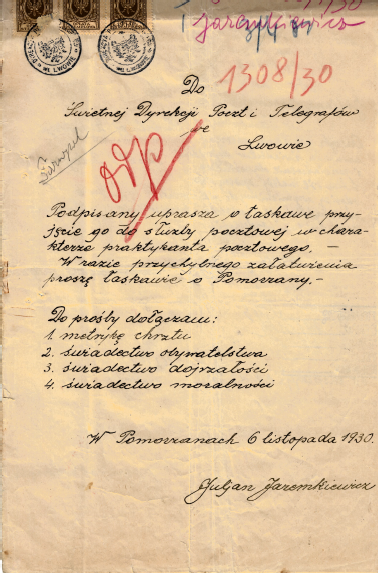 Jaremkiewicz
Do
1308/30
Świetnej Dyrekcji Poczt i Telegrafów
we
Lwowie
odp
Podpisany uprasza o łaskawe przy-
jęcie go do służby pocztowej w chara-
kterze praktykanta pocztowego. —
W razie przychylnego załatwienia
proszę łaskawie o Pomorzany. —
Do prośby dołączam:
1. metrykę chrztu
2. świadectwo obywatelstwa
3. świadectwo dojrzałości
4. świadectwo moralności
W Pomorzanach 6 listopada 1930.
Juljan Jaremkiewicz